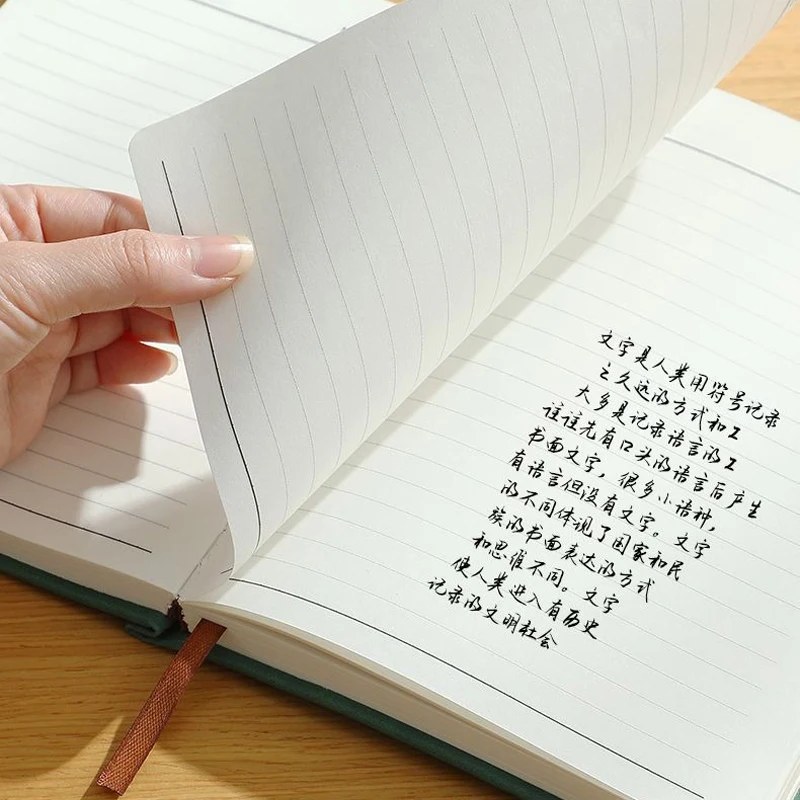 文字是人类用符号记录
之久远的方式和工
大多是记录语言的工
往往先有口头的语言后产生
书面文字，很多小语种，
有语言但没有文字。文字
的不同体现了国家和民
族的书面表达的方式
和思维不同。文字
使人类进入有历史
记录的文明社会